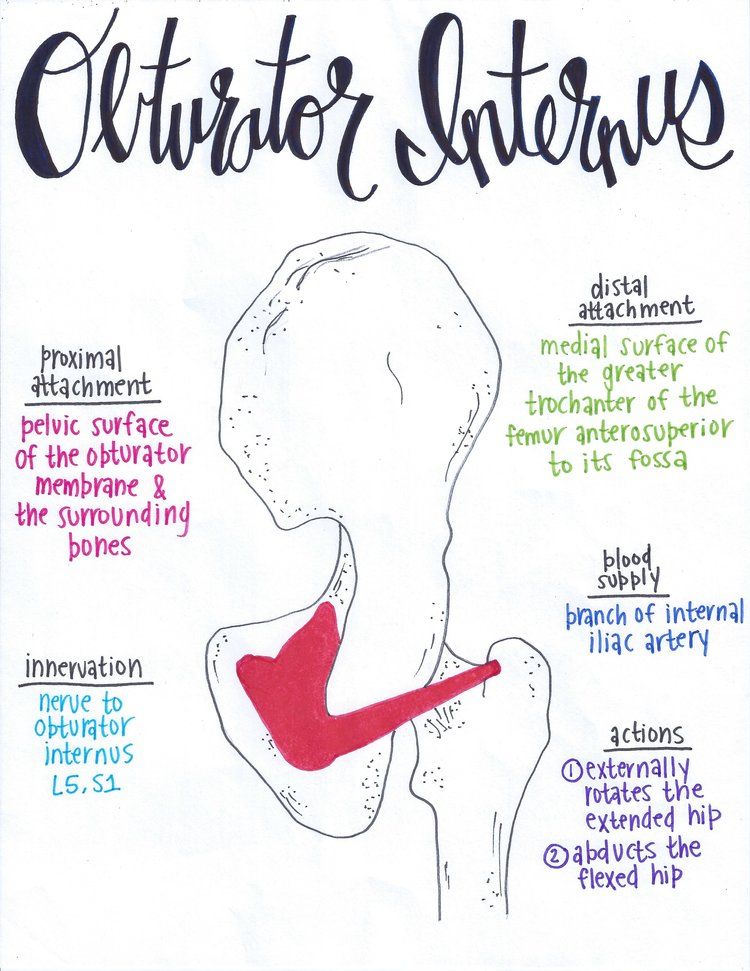 Obturator Internus
proximal
attachment
pelvic surface
of the obturator
membrane &
the surrounding
bones
innervation
nerve to
obturator
internus
L5, S1
distal
attachment
medial surface of
the greater
trochanter of the
femur anterosuperior
to its fossa
blood
supply
branch of internal
iliac artery
actions
① externally
rotates the
extended hip
② abducts the
flexed hip